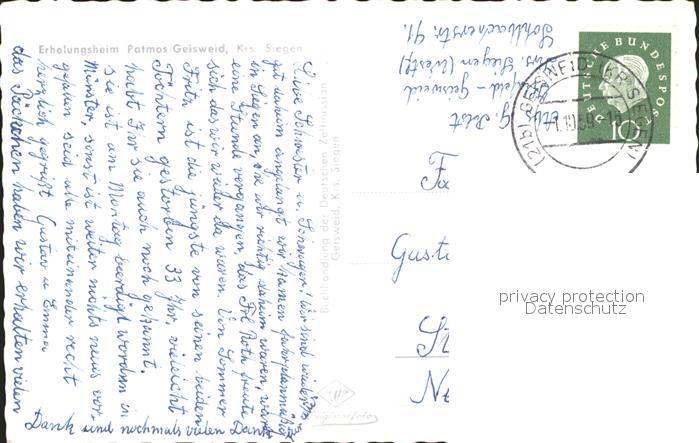 Erholungsheim Patmos Geisweid, Krs. Siegen
Liebe Schwester u. Schwager! Wir sind wieder
gut daheim angelangt wir kamen
in Siegen an, bis wir richtig daheim waren, war
eine Stunde vergangen, das Frl. Roth freute
sich das wir wieder da waren. Von Sommer
Fritz ist die jüngste von seinen beiden
Töchtern gestorben 33 Jhr, vielleicht
habt Ihr sie auch noch gekannt.
sie ist am Montag beerdigt worden in
Münster, sonst ist weiter nichts neues vor-
gefallen seid alle miteinander recht
herzlich gegrüßt Gustav u Emma
das Päckchen haben wir erhalten vielen
Dank und nochmals vielen Dank
Buchhandlung der Deutschen Zeltmission
Geisweid, Krs. Siegen
Abs
Hüttental-Geisweid
Krs. Siegen (Westf)
Sohlbacherstr. 91.
DEUTSCHE BUNDESPOST
10
(21b) GEISWEID (KR SIEGEN)
Fa
Gust
St
Ne
privacy protection
Datenschutz